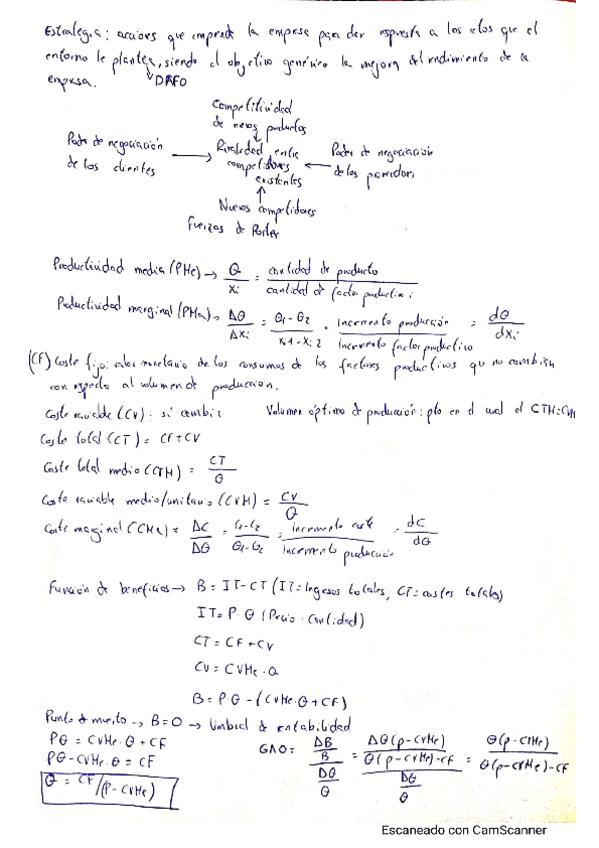 Estrategia: acciones que emprende la empresa para dar respuesta a los retos que el
entorno le plantea, siendo el objetivo genérico la mejora del rendimiento de la
empresa. DAFO
Competitividad
de nuevos productos
Poder de negociación
de los clientes
Rivalidad entre
competidores
existentes
Poder de negociación
de los proveedores
Nuevos competidores
Fuerzas de Porter
Productividad media (PMe) → Q/Xi = cantidad de producto / cantidad de factor productivo i
Productividad marginal (PMa) → ΔQ/ΔXi = Q1-Q2 / Xi1-Xi2 = Incremento producción / Incremento factor productivo = dQ/dXi
(CF) Coste fijo: valor monetario de los consumos de los factores productivos que no cambian
con respecto al volumen de producción.
Coste variable (CV): si cambia Volumen óptimo de producción: pto en el cual el CTM=CMa
Coste total (CT) = CF+CV
Coste total medio (CTM) = CT/Q
Coste variable medio/unitario (CVM) = CV/Q
Coste marginal (CMa) = ΔC/ΔQ = C1-C2 / Q1-Q2 = Incremento coste / incremento producción = dC/dQ
Función de beneficios → B = IT-CT (IT=Ingresos totales, CT: costes totales)
IT= P·Q (Precio · Cantidad)
CT = CF+CV
CV = CVMe·Q
B = P·Q -(CVMe·Q+CF)
Punto de muerto → B=0 → Umbral de rentabilidad
PQ = CVMe·Q + CF
PQ-CVMe·Q = CF
Q = CF/(P-CVMe)
GAO = ΔB/B / ΔQ/Q = ΔQ(p-CVMe) / Q(p-CVMe)-CF / ΔQ/Q = Q(p-CVMe) / Q(p-CVMe)-CF
Escaneado con CamScanner